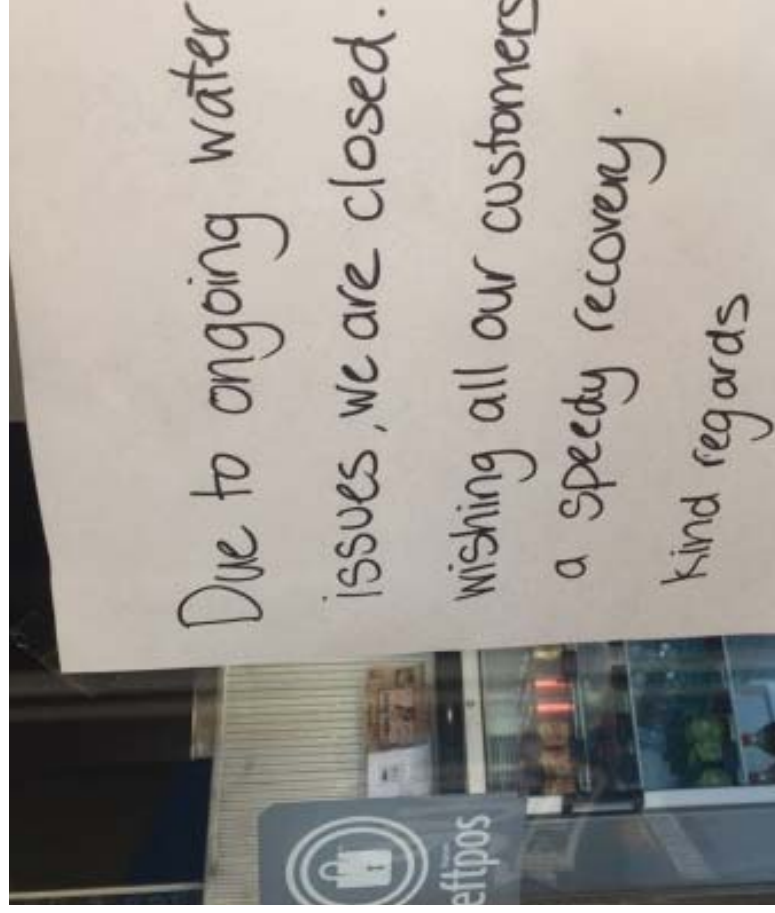 Due to ongoing water
issues, we are closed.
wishing all our customers
a speedy recovery.
kind regards
eftpos